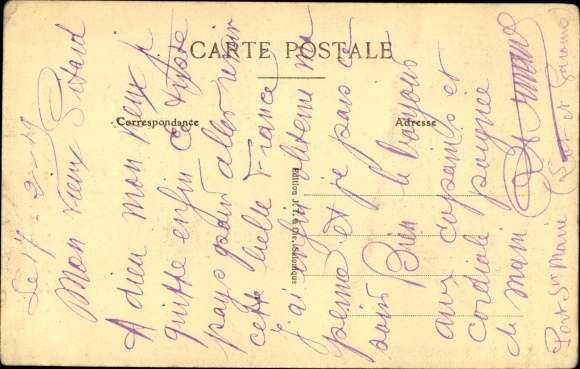 CARTE POSTALE
Correspondance
Adresse
Edition J.T. & Co., Salonique
Le 17 - 2 -
Mon vieux
A dieu mon vieux je
quitte enfin ce triste
pays pour aller revoir
cette belle France
j'ai enfin obtenu ma
perme et je pars ce
soir Bien le bonjour
aux copains et
cordiale poignée
de main
Port Ste Marie (Lot et Garonne)